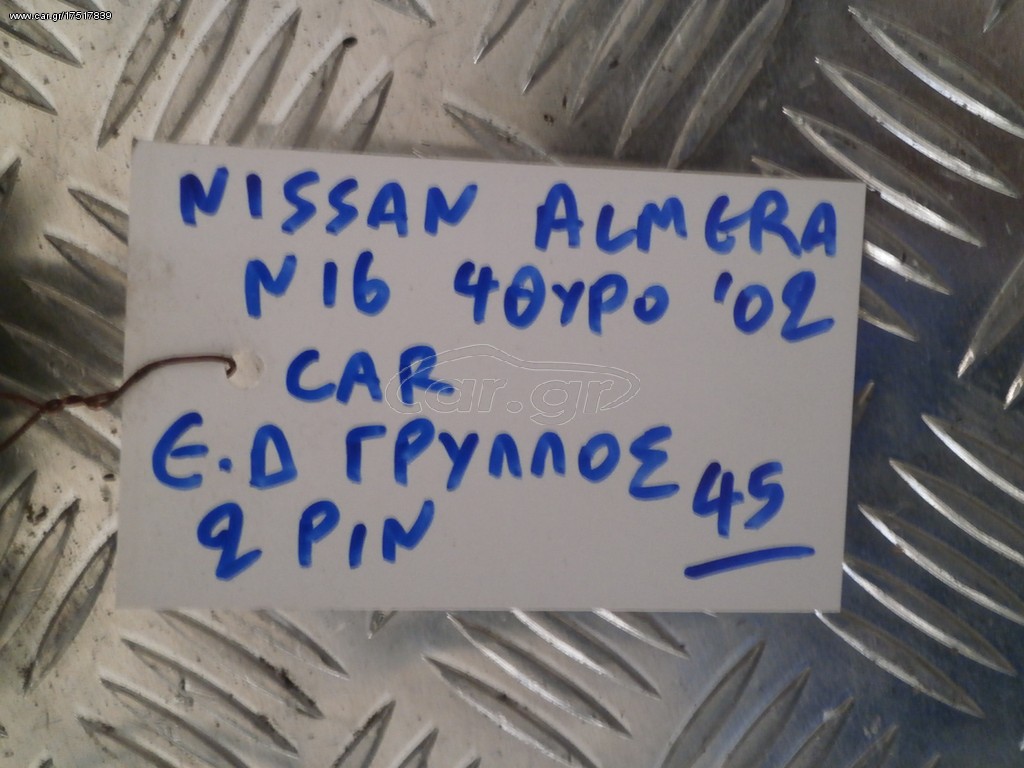 www.car.gr/17517839
NISSAN ALMERA
N16 4ΘΥΡΟ '02
CAR
car.gr
Ε.Δ ΓΡΥΛΛΟΣ
2 PIN
45